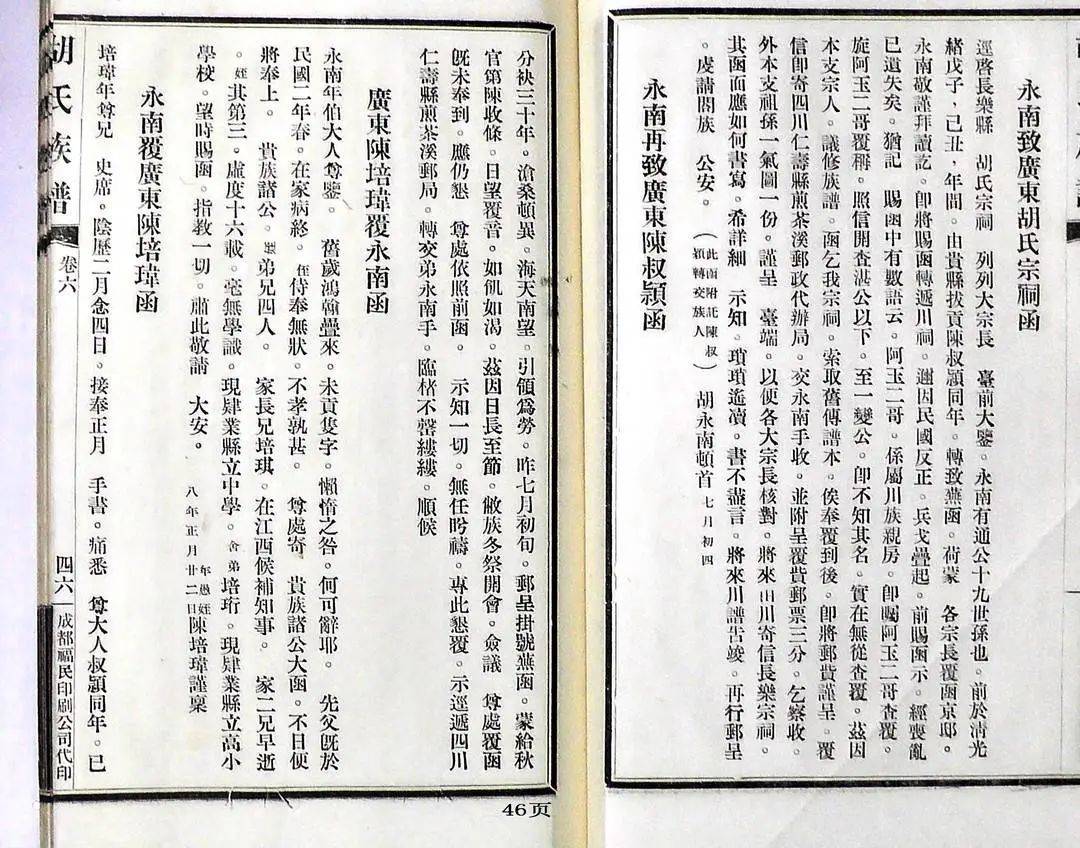 永南致廣東胡氏宗祠函
逕啓長樂縣 胡氏宗祠 列列大宗長 臺前大鑒。永南有通公十九世孫也。前於清光
緒戊子,己丑,年間。由貴縣拔貢陳叔潁同年。轉致蕪函。荷蒙 各宗長覆函京邸。
永南敬謹拜讀訖。卽將賜函轉遞川祠。邇因民國反正。兵戈疊起。前賜函示。經喪亂
已遺失矣。猶記 賜函中有數語云。阿玉二哥。係屬川族親房。卽囑阿玉二哥查覆。
旋阿玉二哥覆稱。照信開查湛公以下。至一變公。卽不知其名。實在無從查覆。茲因
本支宗人。議修族譜。函乞我宗祠。索取舊傳譜本。俟奉覆到後。卽將郵費謹呈。覆
信卽寄四川仁壽縣煎茶溪郵政代辦局。交永南手收。並附呈覆貲郵票三分。乞察收。
外本支祖孫一氣圖一份。謹呈 臺端。以便各大宗長核對。將來由川寄信長樂宗祠。
其函面應如何書寫。希詳細 示知。瑣瑣遙凟。書不盡言。將來川譜告竣。再行郵呈
。虔請閤族 公安。(此函附託陳叔潁轉交族人) 胡永南頓首 七月初四
永南再致廣東陳叔潁函
分袂三十年。滄桑頓異。海天南望。引領爲勞。昨七月初旬。郵呈掛號蕪函。蒙給秋
官第陳收條。日望覆音。如飢如渴。茲因日長至節。敝族冬祭開會。僉議 尊處覆函
旣未奉到。應仍懇 尊處依照前函。 示知一切。無任盻禱。專此懇覆。示逕遞四川
仁壽縣煎茶溪郵局。轉交弟永南手。臨楮不罄縷縷。順候
廣東陳培瑋覆永南函
永南年伯大人尊鑒。 舊歲鴻翰疊來。未貢隻字。懶惰之咎。何可辭耶。 先父旣於
民國二年春。在家病終。侄侍奉無狀。不孝孰甚。 尊處寄。貴族諸公大函。不日便
將奉上。 貴族諸公。 弟兄四人。 家長兄培琪。在江西候補知事。 家二兄早逝
。姪其第三。虛度十六載。毫無學識。現肄業縣立中學。舍弟培珩。現肄業縣立高小
學校。望時賜函。指教一切。肅此敬請 大安。
八年正月廿二日年愚姪陳培瑋謹稟
永南覆廣東陳培瑋函
培瑋年尊兄 史席。陰歷二月念四日。接奉正月 手書。痛悉 尊大人叔潁同年。已
胡氏族譜
卷六
四六
成都福民印刷公司代印
46页